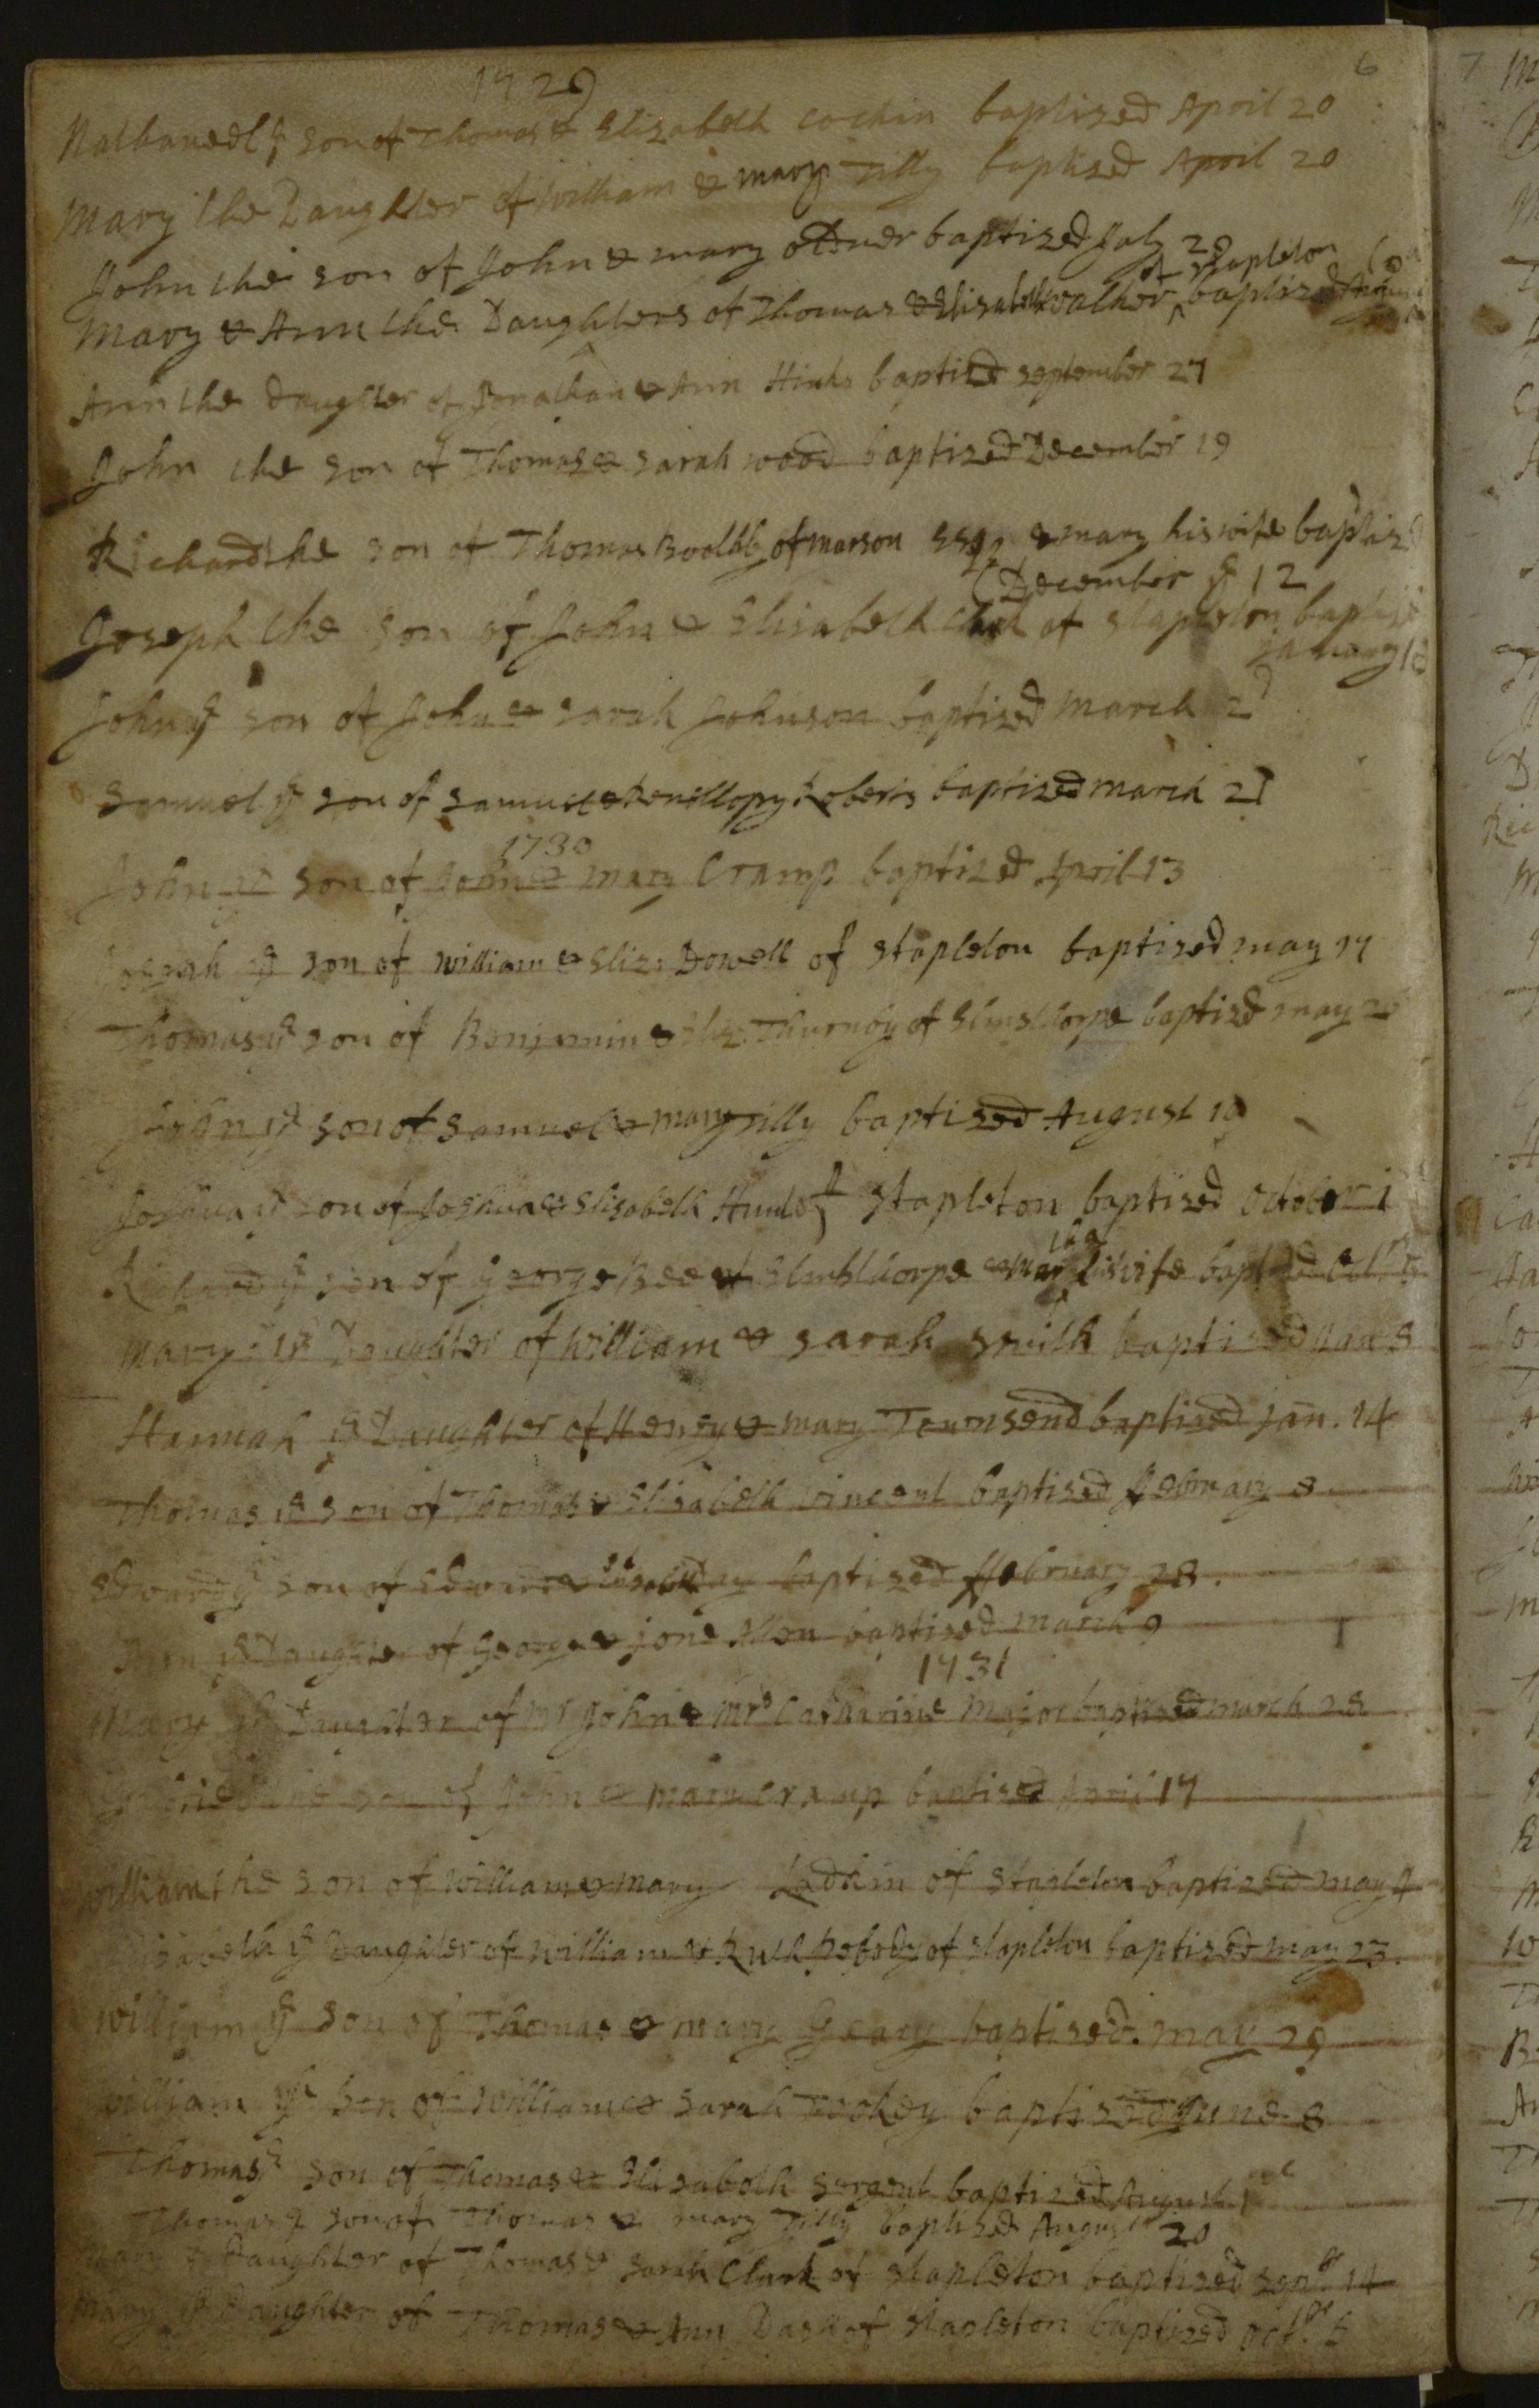 6
1729
Nathanaell ye son of Thomas & Elizabeth Cockin baptized April 20
Mary the Daughter of William & mary Tilly baptized April 20
John the son of John & mary baptized July 29
of Stapleton
Mary & Ann the Daughters of Thomas & Elisabeth walker baptized August
Ann the Daughter of Jonathan & Ann Hinks baptized september 27
John the son of Thomas & sarah wood baptized December 19
Richard the son of Thomas Boothby of marson Esqr & mary his wife baptized
(December ye 12
Joseph the son of John & Elisabeth Clark of stapleton baptized
January 18
John ye son of John & sarah Johnson baptized March 2d
Samuel ye son of samuel & Penillopy Roberts baptized march 27
1730
John ye son of John & mary Cramp baptized April 13
ye son of william & Eliz: Dowell of stapleton baptized may 17
Thomas ye son of Benjamin & Eliz: Thurnby of Elmsthorpe baptized may 20
John ye son of samuel & mary Tilly baptized August 19
Joshua ye son of Joshua & Elisabeth Hunt of Stapleton baptized October 1
Richard ye son of George Bee of Elmsthorpe & mary his wife baptized
mary ye Daughter of William & sarah smith baptized Jan 8
Hannah ye Daughter of Henry & mary Townsend baptized Jan. 14
Thomas ye son of Thomas & Elisabeth vincent baptized February 8
Edward ye son of Edward & Elisabeth Day baptized ffebruary 28.
Ann ye Daughter of George & Jone Allen baptized march 9
1731
Mary ye Daughter of mr John & Mrs Catharine Major baptized march 28
the son of John & mary Cramp baptized April 17
William the son of William & mary Ladkin of Stapleton baptized may 4
Elisabeth ye Daughter of William & Ruth Pebody of stapleton baptized may 23.
William ye son of Thomas & mary Geary baptized. may 29
William ye son of William & sarah Tookey baptized June 8
Thomas ye son of Thomas & Elisabeth sargent baptized August 1st
Thomas ye son of Thomas & mary Tilly baptized August 20
Mary ye Daughter of Thomas & sarah Clark of Stapleton baptized sepbr 14
Mary ye Daughter of Thomas & Ann Dash of stapleton baptized octbr 5